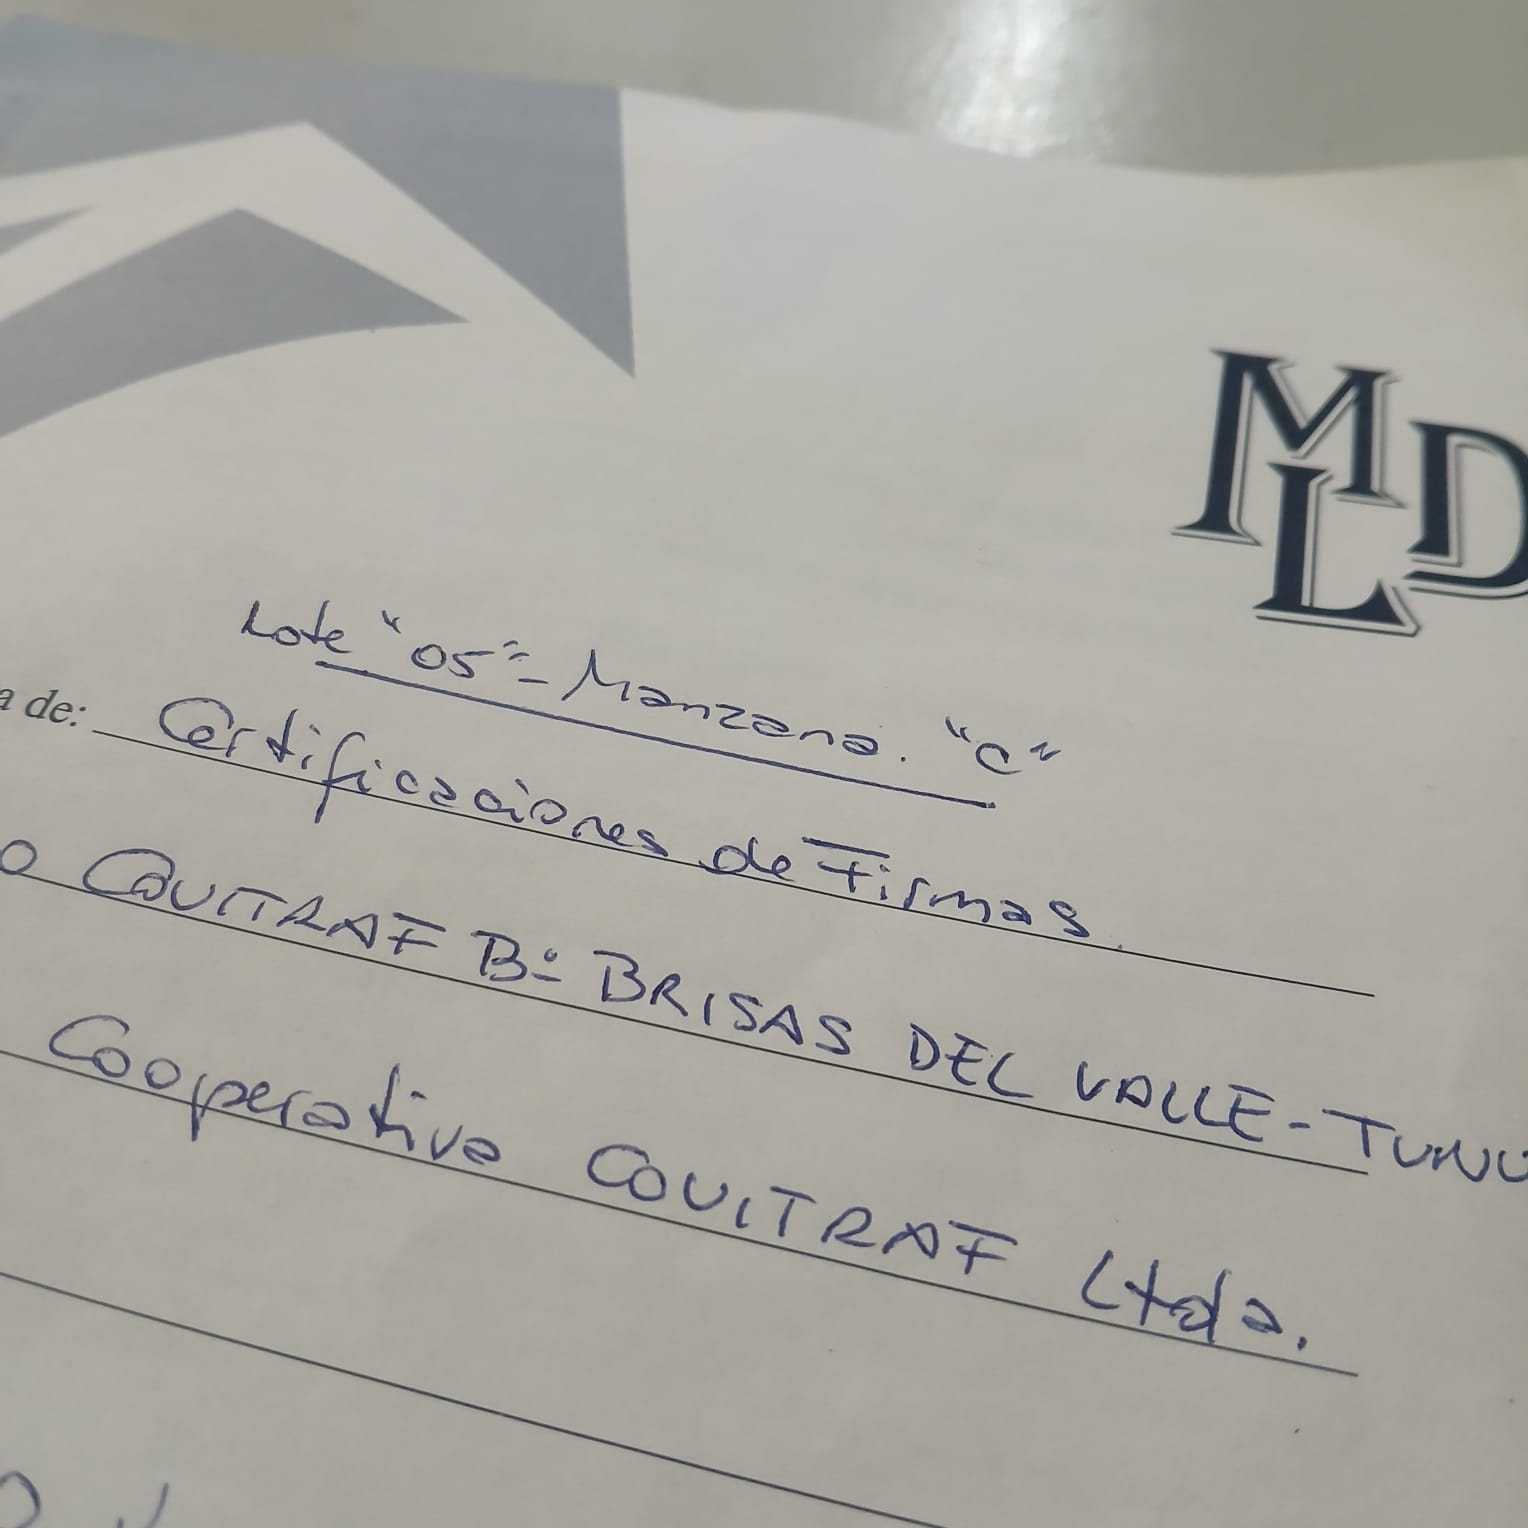 MLD
Lote "05" - Manzana. "C"
a de: Certificaciones de Firmas.
o COVITRAF Bº BRISAS DEL VALLE - TUNU
Cooperativa COVITRAF Ltda.